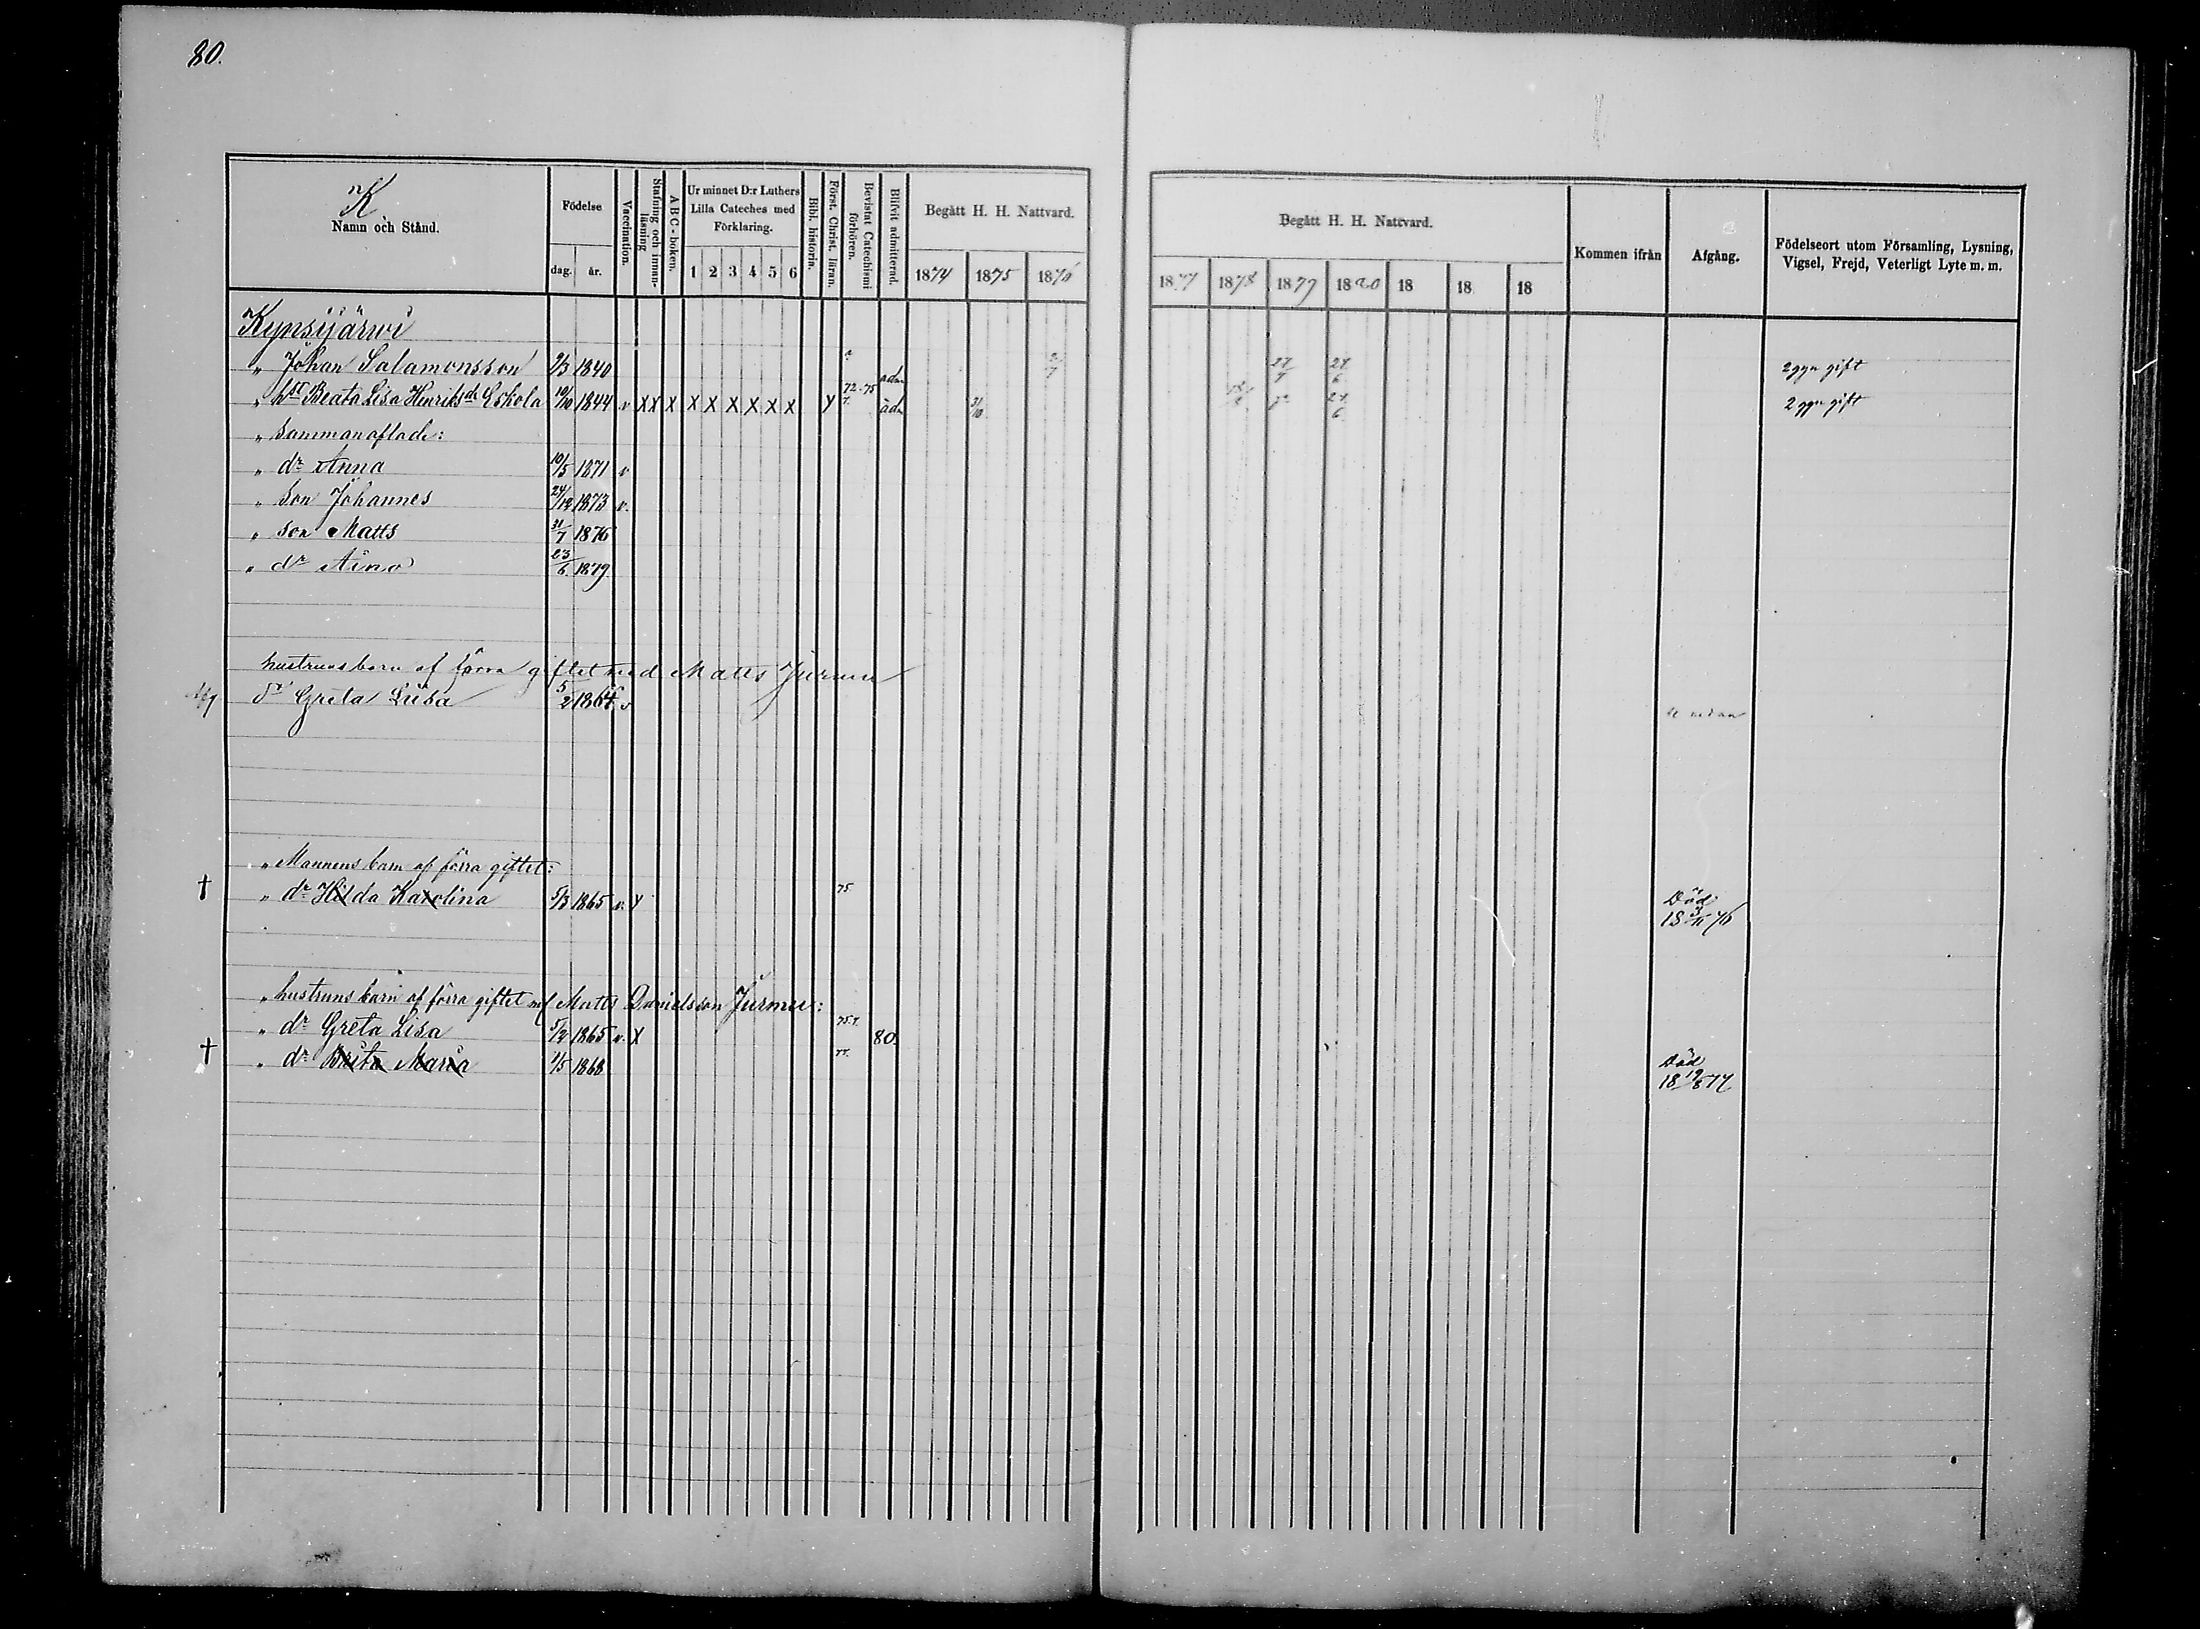 80.
K
Namn och Stånd.
Födelse
dag. år.
Vaccination.
Stafning och innanläsning
ABC-boken.
Ur minnet D:r Luthers Lilla Cateches med Förklaring.
1 2 3 4 5 6
Bibl. historia.
Först. Christ. läran.
Bevistat Catechismi förhören.
Blifvit admitterad.
Begått H. H. Nattvard.
1874 1875 1876
Begått H. H. Nattvard.
1877 1878 1879 1880 18 18 18
Kommen ifrån
Afgång.
Födelseort utom Församling, Lysning, Vigsel, Frejd, Veterligt Lyte m. m.
Kypsijärwi
" Johan Salamonsson 9/3 1840 adm 2/7 27/7 27/6 2 ggr gift
" hst Beata Lisa Henriksdr Eskola 10/10 1844 v X X X X X X X X X Y 72-75 adm 31/10 27/6 2 ggr gift
" Sammanaflade:
" dr Anna 10/5 1871 v
" Son Johannes 24/12 1873 v.
" Son Matts 31/7 1876
" dr Aino 23/6 1879
hustruns barn af förra giftet med Matts Jurmu
dr Greta Liisa 5/2 1864 v se nedan
" Mannens barn af förra giftet:
† " dr Hilda Karolina 5/3 1865 v. Y 75 Död 18 3/11 76
" hustruns barn af förra giftet mf Matts Danielsson Jurmu:
" dr Greta Lisa 5/2 1865 v. X 75.7. 80.
† " dr Brita Maria 1/5 1868 77. Död 18 19/8 77